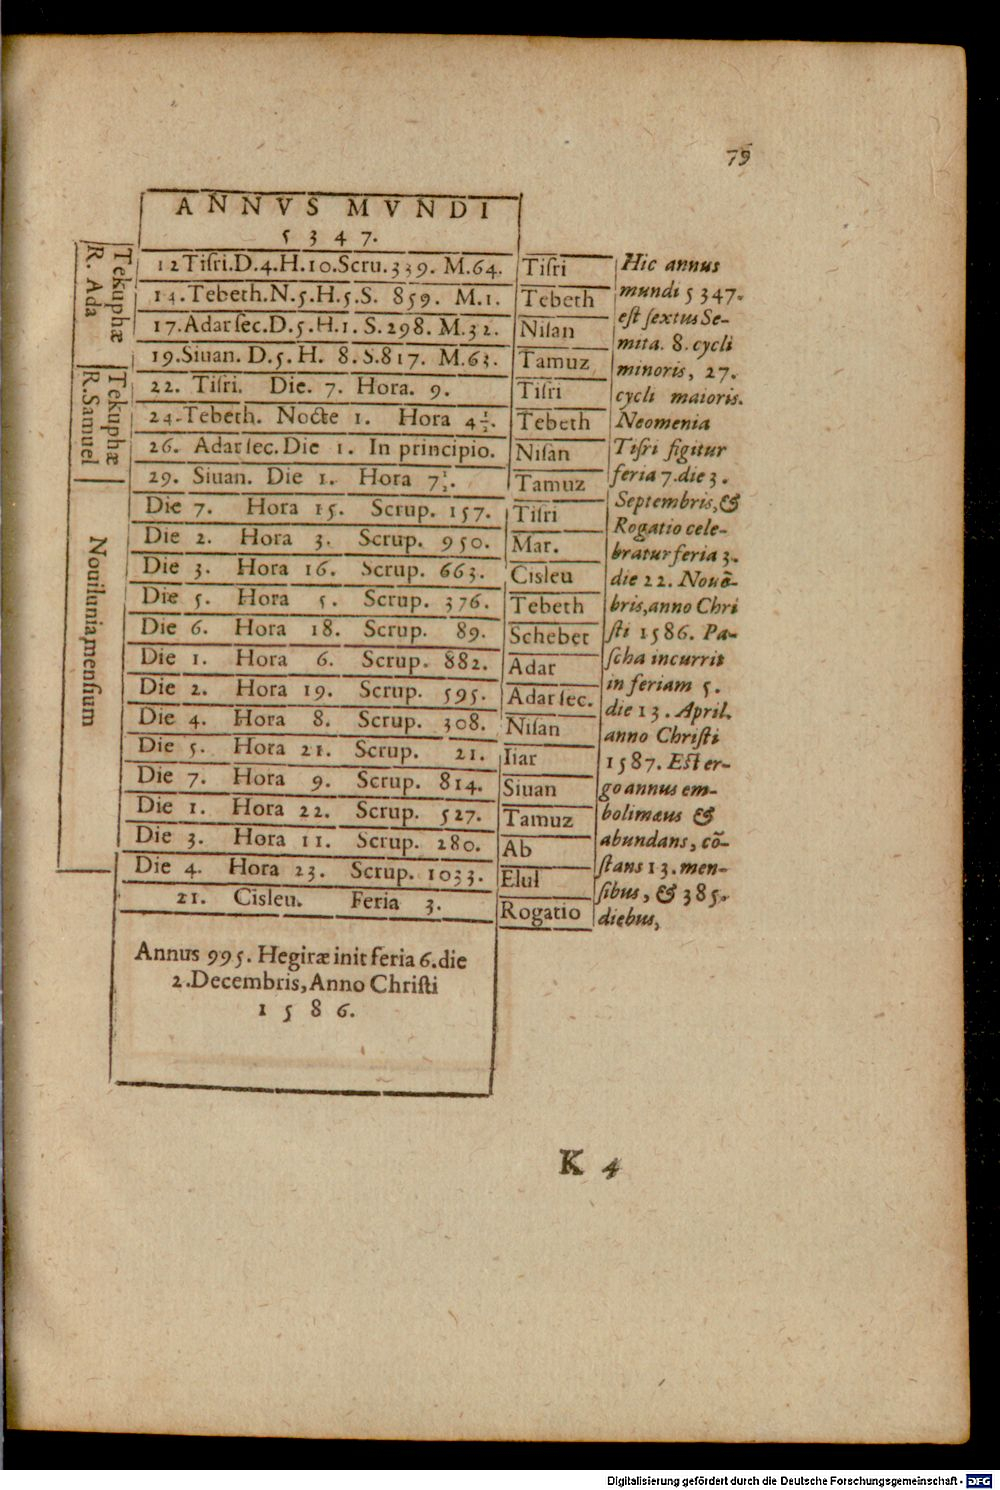 75
ANNVS MVNDI
5347.
Tekuphæ
R. Ada
12 Tiſri.D.4.H.10.Scru.339. M.64. Tiſri
14.Tebeth.N.5.H.5.S. 859. M.1. Tebeth
17.Adar ſec.D.5.H.1.S.298. M.32. Niſan
19.Siuan. D.5.H. 8.S.817. M.63. Tamuz
Tekuphæ
R.Samuel
22. Tiſri. Die. 7. Hora. 9. Tiſri
24.Tebeth. Nocte 1. Hora 4½. Tebeth
26. Adar ſec.Die 1. In principio. Niſan
29. Siuan. Die 1. Hora 7½. Tamuz
Nouilunia menſium
Die 7. Hora 15. Scrup. 157. Tiſri
Die 2. Hora 3. Scrup. 950. Mar.
Die 3. Hora 16. Scrup. 663. Ciſleu
Die 5. Hora 5. Scrup. 376. Tebeth
Die 6. Hora 18. Scrup. 89. Schebet
Die 1. Hora 6. Scrup. 882. Adar
Die 2. Hora 19. Scrup. 595. Adar ſec.
Die 4. Hora 8. Scrup. 308. Niſan
Die 5. Hora 21. Scrup. 21. Iiar
Die 7. Hora 9. Scrup. 814. Siuan
Die 1. Hora 22. Scrup. 527. Tamuz
Die 3. Hora 11. Scrup. 280. Ab
Die 4. Hora 23. Scrup. 1033. Elul
21. Ciſleu. Feria 3. Rogatio
Annus 995. Hegiræ init feria 6.die
2.Decembris, Anno Chriſti
1586.
Hic annus
mundi 5347.
eſt ſextus Se-
mita. 8. cycli
minoris, 27.
cycli maioris.
Neomenia
Tiſri figitur
feria 7.die 3.
Septembris,&
Rogatio cele-
bratur feria 3.
die 22. Nouẽ-
bris,anno Chri
ſti 1586. Pa-
ſcha incurrit
in feriam 5.
die 13. April.
anno Chriſti
1587. Eſt er-
go annus em-
bolimæus &
abundans, cõ-
ſtans 13. men-
ſibus, & 385.
diebus,
K 4
Digitalisierung gefördert durch die Deutsche Forschungsgemeinschaft - DFG